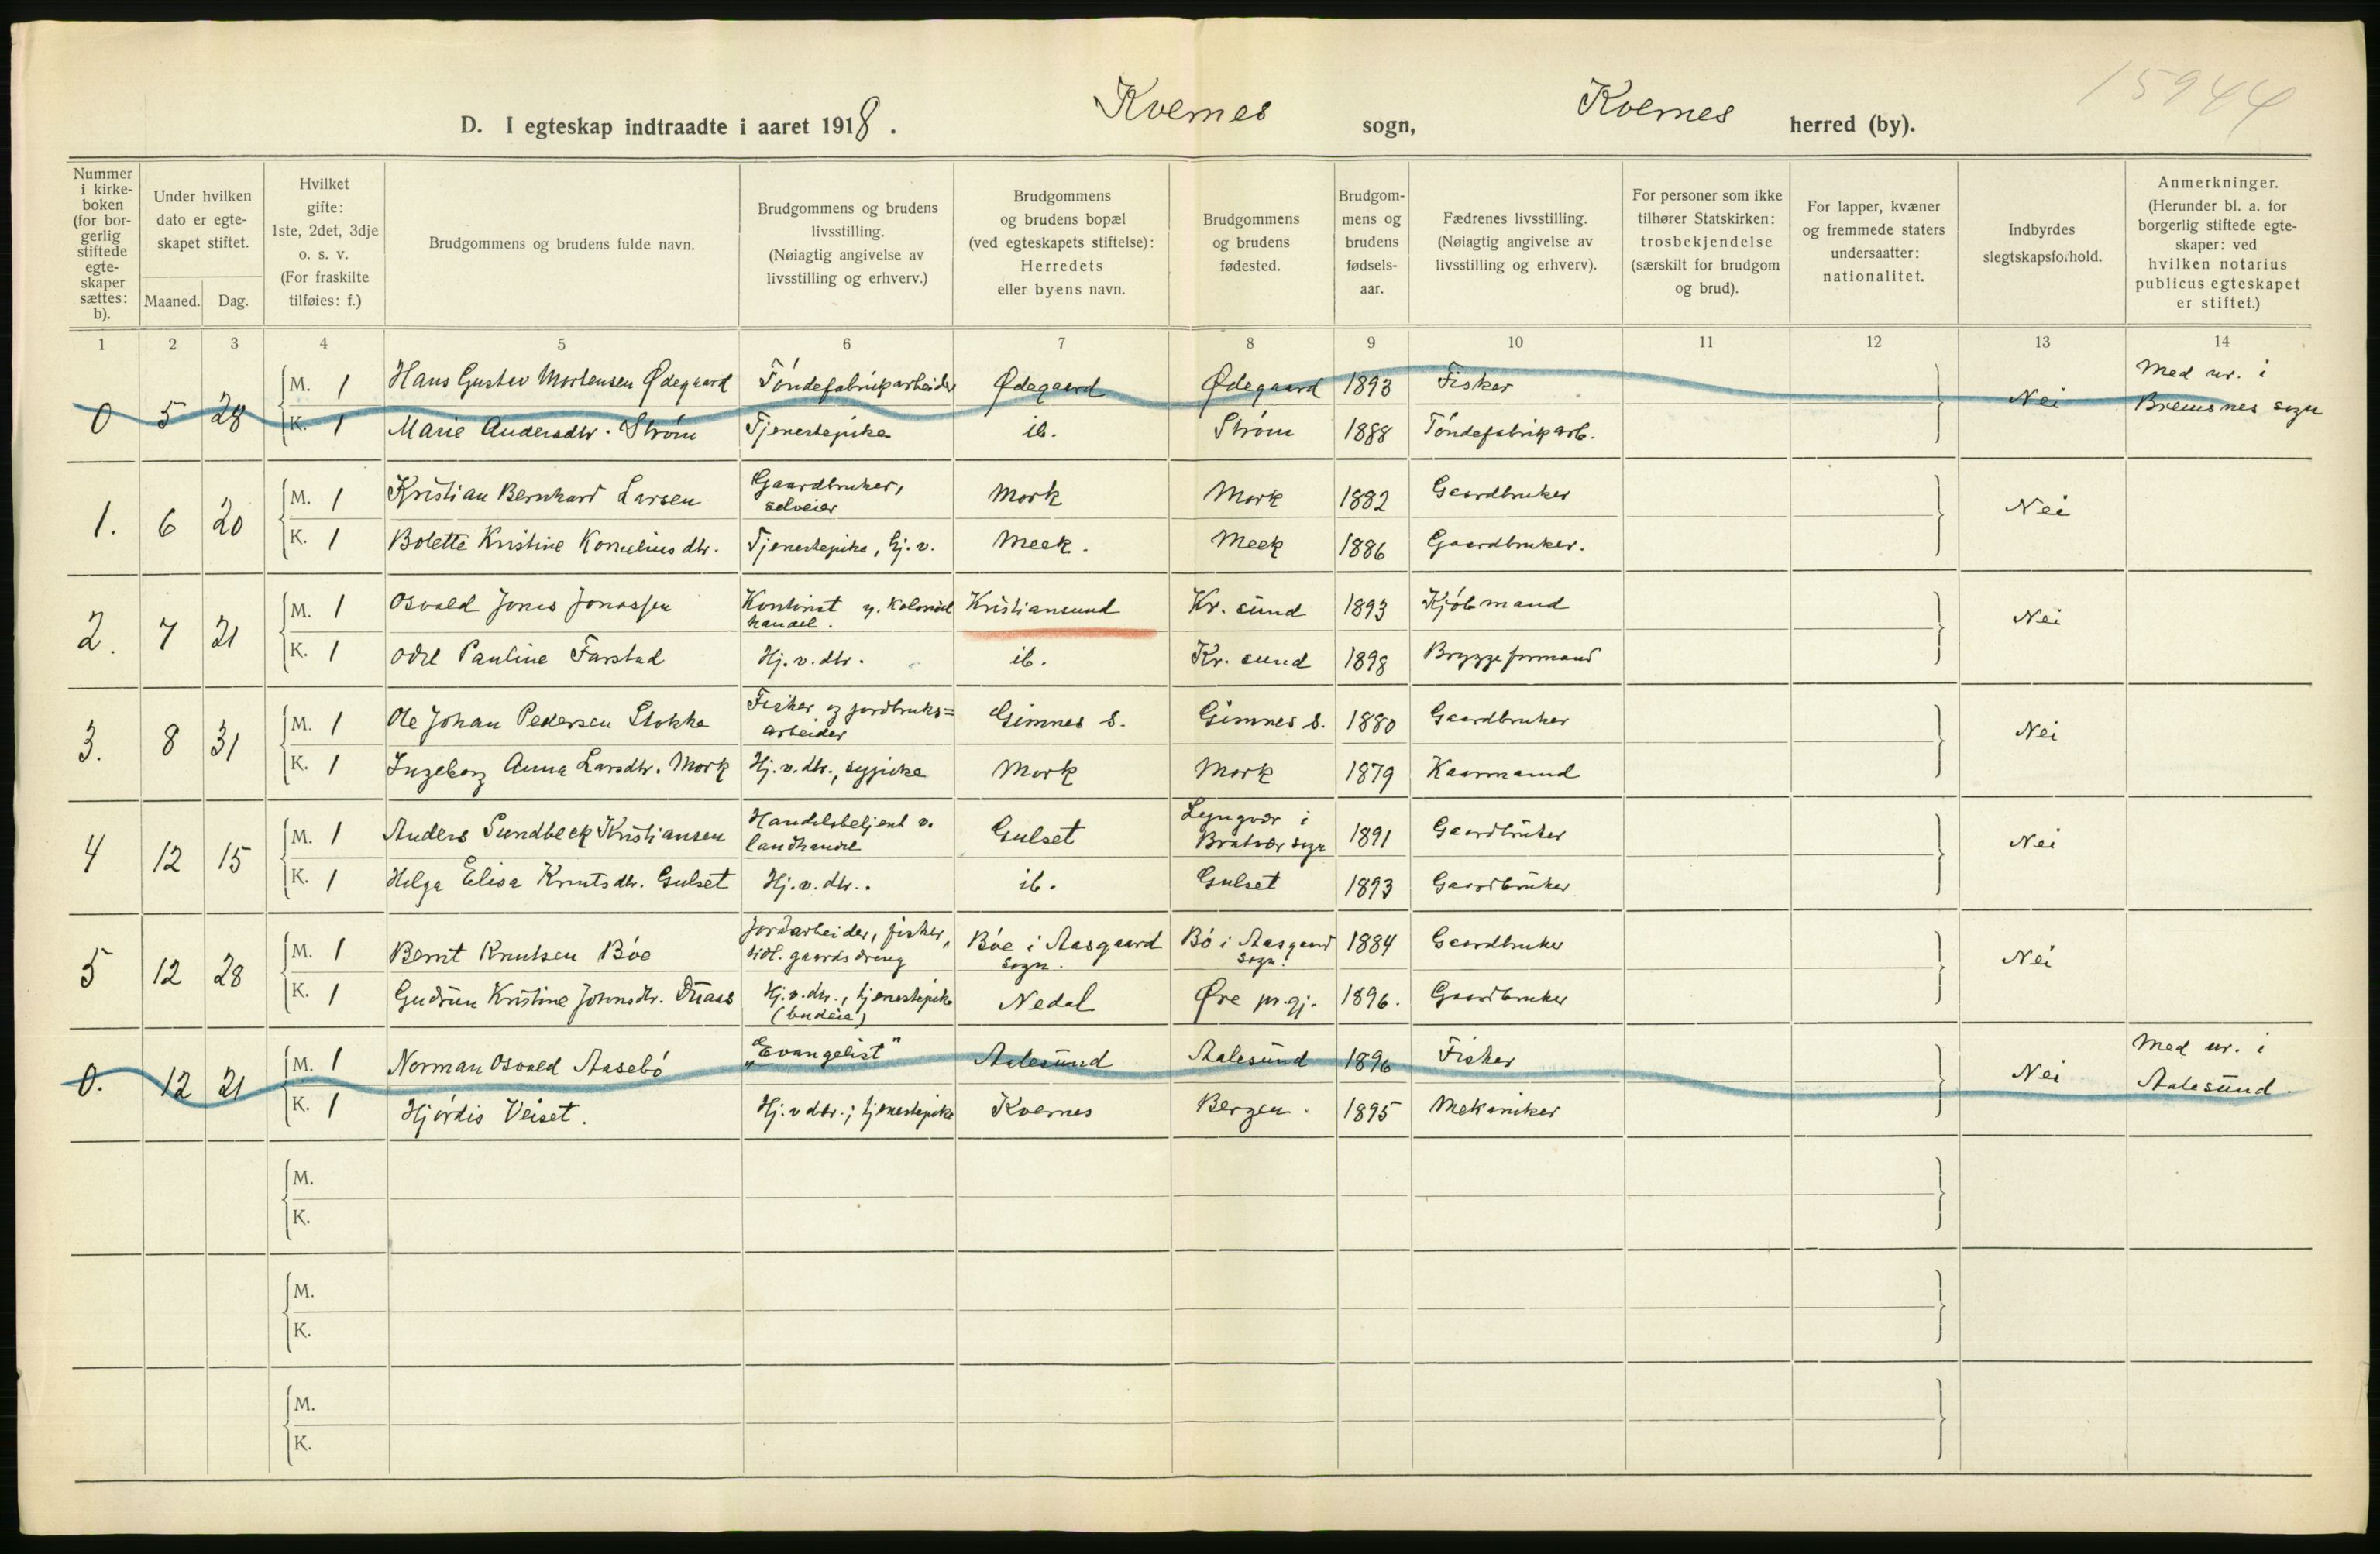 15944
D. I egteskap indtraadte i aaret 1918. Kvernes sogn, Kvernes herred (by).
Nummer i kirke-boken (for bor-gerlig stiftede egte-skaper sættes: b).
Under hvilken dato er egte-skapet stiftet.
Maaned. Dag.
Hvilket gifte: 1ste, 2det, 3dje o. s. v. (For fraskilte tilføies: f.)
Brudgommens og brudens fulde navn.
Brudgommens og brudens livsstilling. (Nøiagtig angivelse av livsstilling og erhverv.)
Brudgommens og brudens bopæl (ved egteskapets stiftelse): Herredets eller byens navn.
Brudgommens og brudens fødested.
Brudgom-mens og brudens fødsels-aar.
Fædrenes livsstilling. (Nøiagtig angivelse av livsstilling og erhverv).
For personer som ikke tilhører Statskirken: trosbekjendelse (særskilt for brudgom og brud).
For lapper, kvæner og fremmede staters undersaatter: nationalitet.
Indbyrdes slegtskapsforhold.
Anmerkninger. (Herunder bl. a. for borgerlig stiftede egte-skaper: ved hvilken notarius publicus egteskapet er stiftet.)
1 2 3 4 5 6 7 8 9 10 11 12 13 14
0 5 28 M. 1 Hans Gustav Mortensen Ødegaard Tøndefabrikarbeider Ødegaard Ødegaard 1893 Fisker Nei Med nr. i Bremsnes sogn
K. 1 Marie Andersdtr. Strøm Tjenestepike ib. Strøm 1888 Tøndefabrikarb.
1. 6 20 M. 1 Kristian Bernhard Larsen Gaardbruker, selveier Mork Mork 1882 Gaardbruker Nei
K. 1 Bolette Kristine Korneliusdtr. Tjenestepike, hj. v. Meek. Meek 1886 Gaardbruker.
2. 7 21 M. 1 Osvald Jonas Jonassen Kontorist v. kolonial handel. Kristiansund Kr. sund 1893 Kjøbmand Nei
K. 1 Odel Pauline Farstad Hj. v. dtr. ib. Kr. sund 1898 Bryggeformand
3. 8 31 M. 1 Ole Johan Pedersen Stokke Fisker og jordbruks= arbeider Gimnes s. Gimnes s. 1880 Gaardbruker Nei
K. 1 Ingeborg Anna Larsdtr. Mork Hj. v. dtr., sypike Mork Mork 1879 Kaarmand
4 12 15 M. 1 Anders Sundbeck Kristiansen Handelsbetjent v. landhandel Gulset Lyngvær i Brattvær sogn 1891 Gaardbruker Nei
K. 1 Helga Elisa Knutsdtr. Gulset Hj. v. dtr.. ib. Gulset 1893 Gaardbruker
5 12 28 M. 1 Bernt Knutsen Bøe Jordarbeider, fisker, tidl. gaardsdreng Bøe i Aasgaard sogn. Bø i Aasgaard sogn. 1884 Gaardbruker Nei
K. 1 Gudrun Kristine Johnsdtr. Hj. v. dtr., tjenestepike (budeie) Nedal Øre pr.gj. 1896. Gaardbruker
0. 12 21 M. 1 Norman Osvald Aasebø „Evangelist" Aalesund Aalesund 1896 Fisker Nei Med nr. i Aalesund.
K. 1 Hjørdis Veiset. Hj. v dtr.; tjenestepike Kvernes Bergen. 1895 Mekaniker
M.
K.
M.
K.
M.
K.